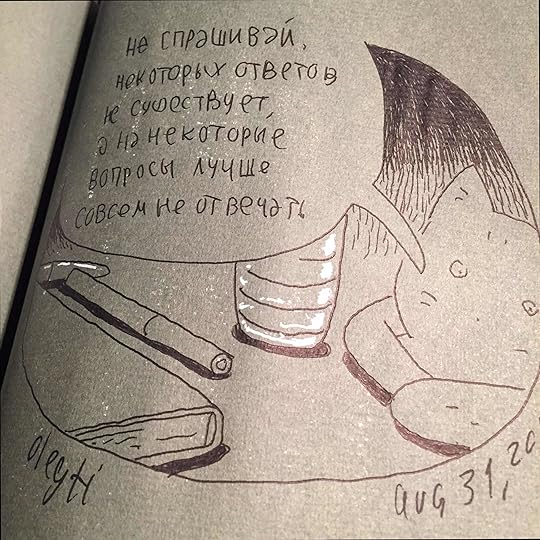 не спрашивай,
некоторых ответов
не существует,
а на некоторые
вопросы лучше
совсем не отвечать
olegti
aug 31, 20